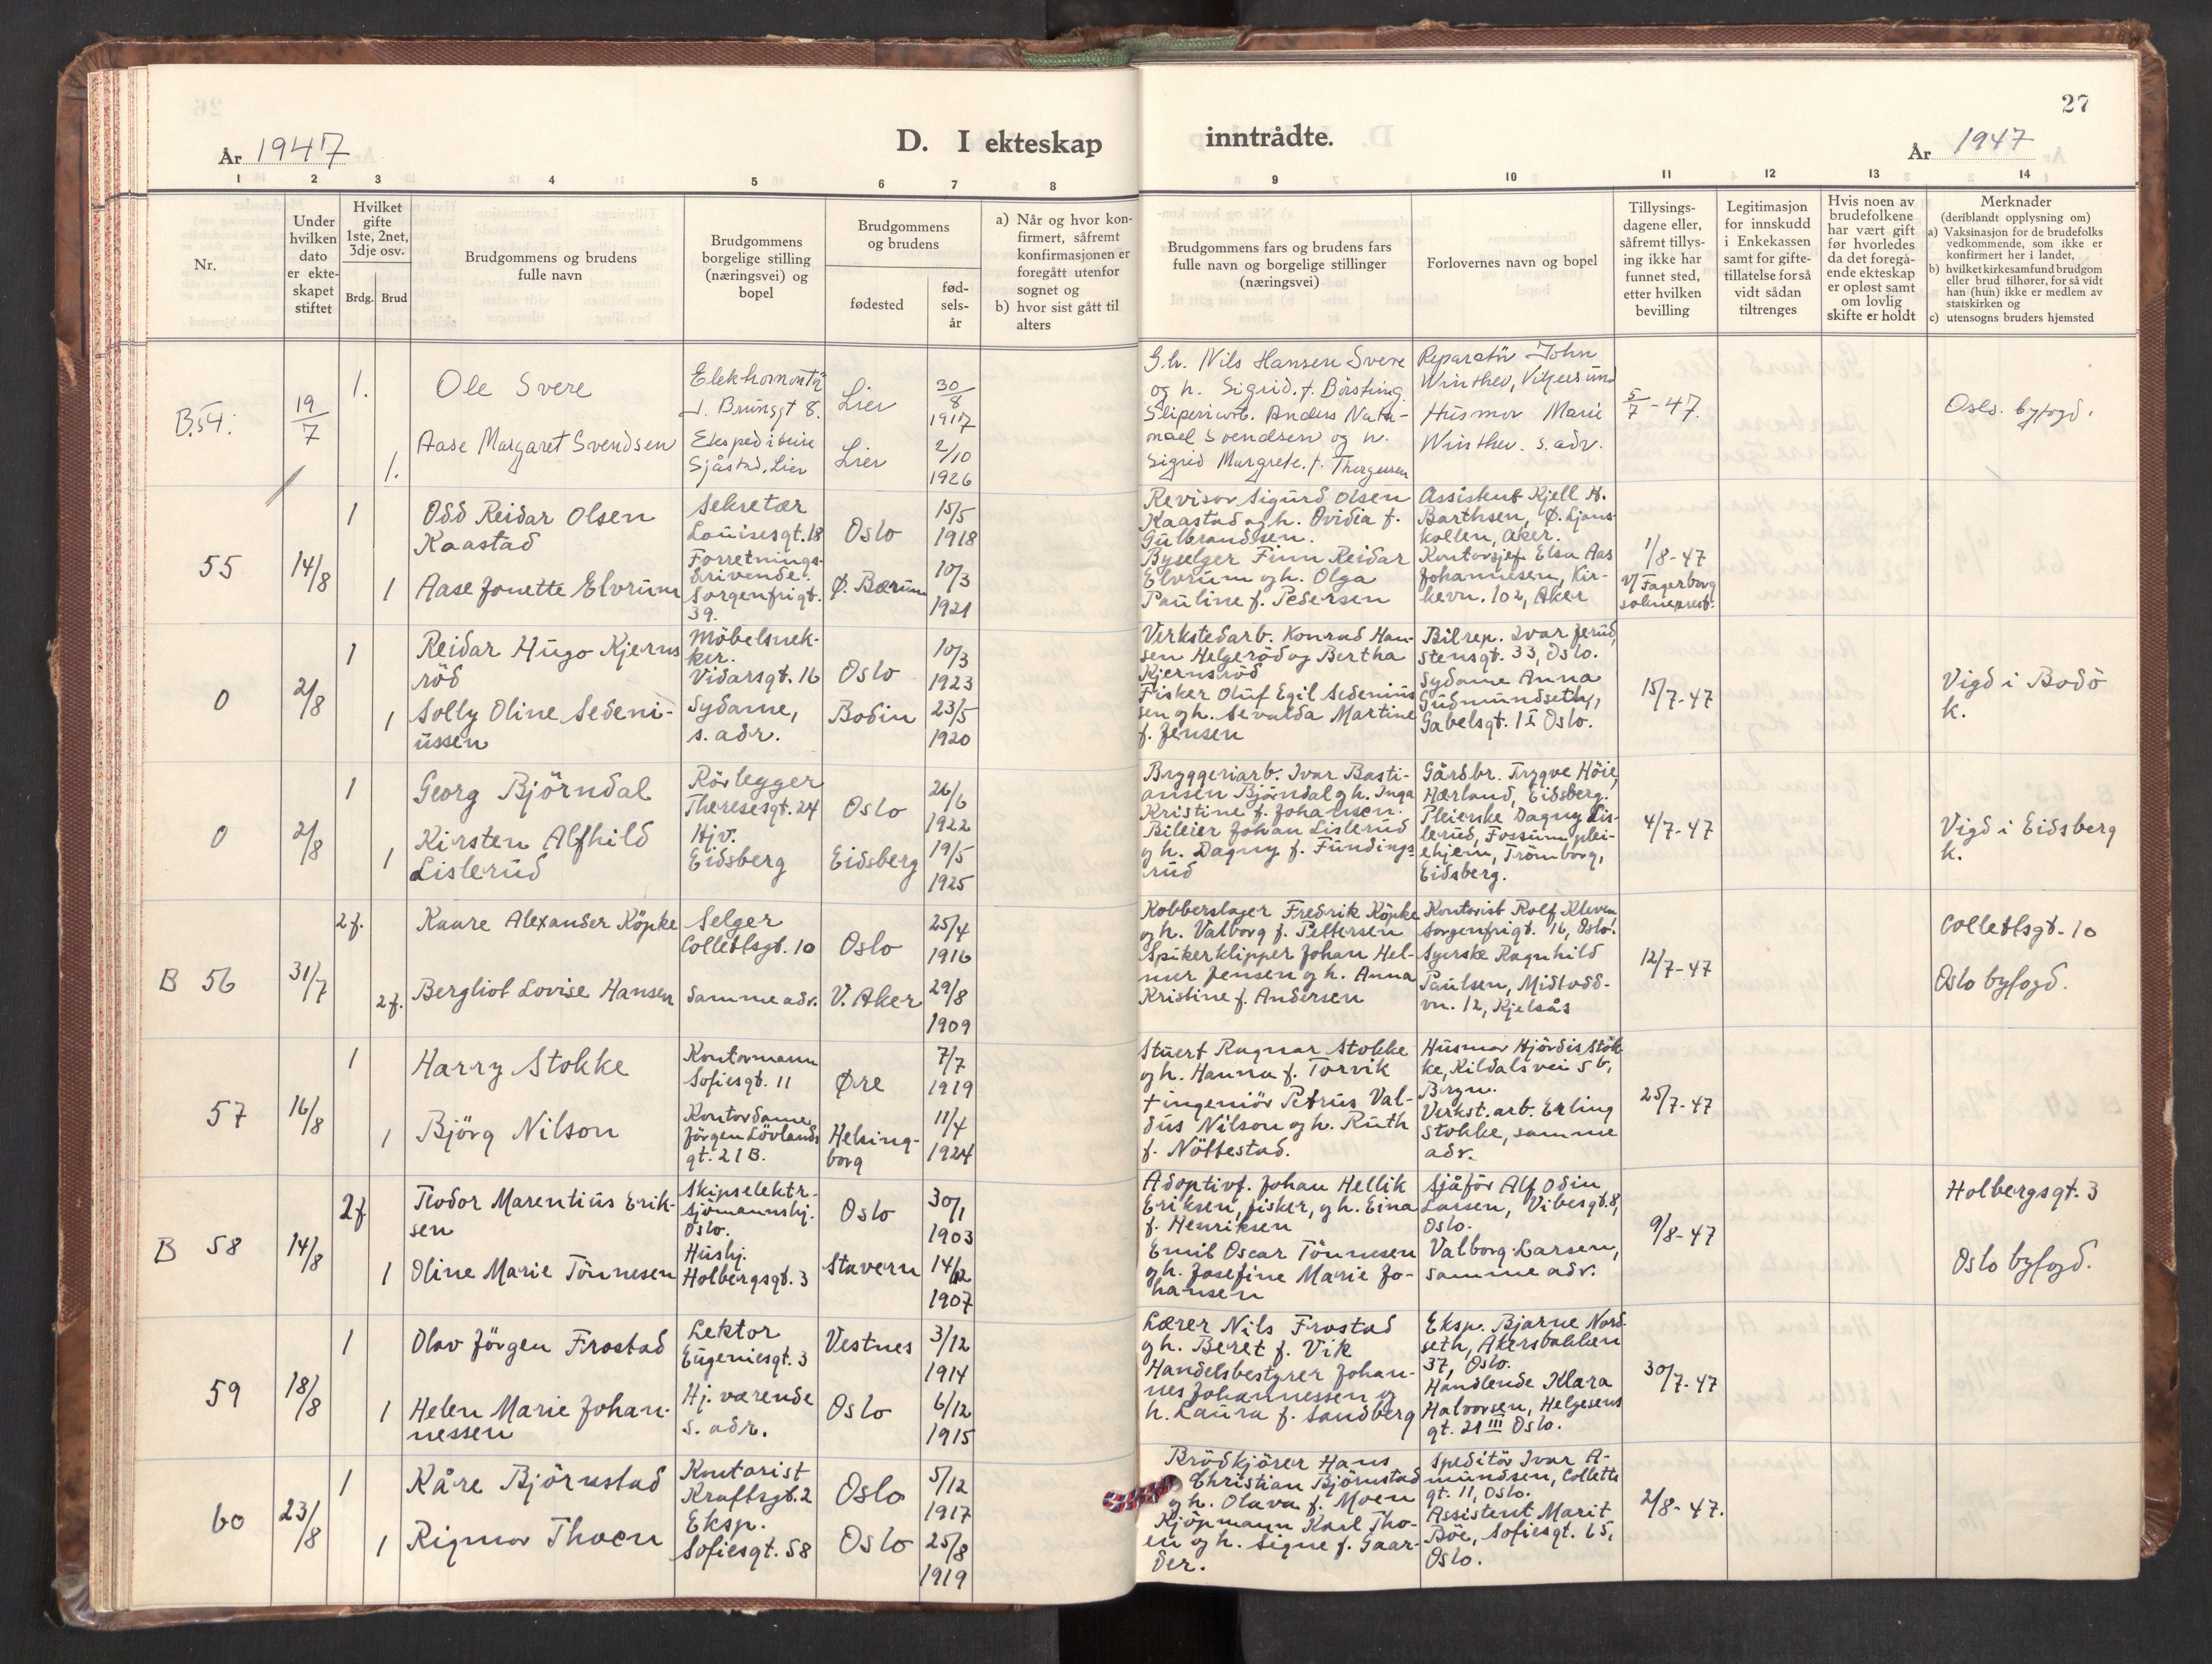 27
År 1947
D. I ekteskap
inntrådte.
År 1947
1 2 3 4 5 6 7 8 9 10 11 12 13 14
Nr.
Under
hvilken
dato
er ekte-
skapet
stiftet
Hvilket
gifte
1ste, 2net,
3dje osv.
Brdg. Brud
Brudgommens og brudens
fulle navn
Brudgommens
borgelige stilling
(næringsvei) og
bopel
Brudgommens
og brudens
fødested
fød-
sels-
år
a) Når og hvor kon-
firmert, såfremt
konfirmasjonen er
foregått utenfor
sognet og
b) hvor sist gått til
alters
Brudgommens fars og brudens fars
fulle navn og borgelige stillinger
(næringsvei)
Forlovernes navn og bopel
Tillysings-
dagene eller,
såfremt tillys-
ing ikke har
funnet sted,
etter hvilken
bevilling
Legitimasjon
for innskudd
i Enkekassen
samt for gifte-
tillatelse for så
vidt sådan
tiltrenges
Hvis noen av
brudefolkene
har vært gift
før hvorledes
da det foregå-
ende ekteskap
er opløst samt
om lovlig
skifte er holdt
Merknader
(deriblandt opplysning om)
a) Vaksinasjon for de brudefolks
vedkommende, som ikke er
konfirmert her i landet,
b) hvilket kirkesamfund brudgom
eller brud tilhører, for så vidt
han (hun) ikke er medlem av
statskirken og
c) utensogns bruders hjemsted
B.54.
19/7
1.
Ole Svere
Elektromontör
J. Brunsgt 8.
Lier
30/8
1917
1.
Aase Margaret Svendsen
Ekspeditrise
Sjåstad, Lier
Lier
2/10
1926
G.br. Nils Hansen Svere
og h. Sigrid f. Börsting.
Sliperiarb. Anders Nata-
nael Svendsen og h.
Sigrid Margrete f. Thorgersen
Reparatör John
Winther, Vikersund
Husmor Marie
Winther. s. adr.
5/7-47.
Oslo byfogd.
55
14/8
1
Odd Reidar Olsen
Kaastad
Sekretær
Louisesgt. 18
Oslo
15/5
1918
1
Aase Jonette Elvrum
Forretnings-
drivende.
Sorgenfrigt.
39.
Ø. Bærum
10/3
1921
Revisor Sigurd Olsen
Kaastad og h. Ovidia f.
Gulbrandsen.
Byselger Finn Reidar
Elvrum og h. Olga
Pauline f. Pedersen
Assistent Kjell H.
Barthsen, Ø. Ljans-
kollen, Aker.
Kontorsjef Elsa Aas
Johannesen, Kir-
kevn. 102, Aker
1/8-47
v/ Fagerborg
sokneprest.
0
2/8
1
Reidar Hugo Kjerns
röd
Möbelsnek-
ker.
Vidarsgt. 16
Oslo
10/3
1923
1
Solly Oline Sedeni-
ussen
Sydame,
s. adr.
Bodin
23/5
1920
Verkstedarb. Konrad Han-
sen Helgeröd og Bertha
Kjernsröd
Fisker Oluf Egil Sedenius
sen og h. Sevalda Martine
f. Jensen
Bilrep. Ivar Jerud,
Stensgt. 33, Oslo.
Sydame Anna
Gudmundseth,
Gabelsgt. 1 I Oslo.
15/7-47
Vigd i Bodö
k.
0
2/8
1
Georg Björndal
Rörlegger
Theresesgt. 24
Oslo
26/6
1922
1
Kirsten Alfhild
Lislerud
Hjv.
Eidsberg
Eidsberg
19/5
1925
Bryggeriarb. Ivar Basti-
ansen Björndal og h. Inga
Kristine f. Johansen.
Bileier Johan Lislerud
og h. Dagny f. Fundings-
rud
Gårdbr. Trygve Höie,
Hærland, Eidsberg.
Pleierske Dagny Lis-
lerud, Fossum plei-
ehjem, Trömborg,
Eidsberg.
4/7-47
Vigd i Eidsberg
k.
B 56
31/7
2 f.
Kaare Alexander Köpke
Selger
Collettsgt. 10
Oslo
25/4
1916
2 f.
Bergliot Lovise Hansen
Samme adr.
V. Aker
29/8
1909
Kobberslager Fredrik Köpke
og h. Valborg f. Pettersen
Spikerklipper Johan Hel-
mer Jensen og h. Anna
Kristine f. Andersen
Kontorist Rolf Kleven,
Sorgenfrigt. 16, Oslo.
Syerske Ragnhild
Paulsen, Midtodd-
vn. 12, Kjelsås
12/7-47
Collettsgt. 10
Oslo byfogd.
57
16/8
1
Harry Stokke
Kontormann
Sofiesgt. 11
Øre
7/7
1919
1
Björg Nilson
Kontordame
Jörgen Lövlands
gt. 21 B.
Helsing-
borg
11/4
1924
Stuert Ragnar Stokke
og h. Hanna f. Torvik
+ ingeniör Petrus Val-
dus Nilson og h. Ruth
f. Nöttestad.
Husmor Hjördis Stok
ke, Kildalsvei 5 b,
Bryn.
Verkst. arb. Erling
Stokke, samme
adr.
25/7-47
B 58
14/8
2 f
Teodor Marentius Erik-
sen
Skipselektr.
Sjömannshj.
Oslo.
Oslo
30/1
1903
1
Oline Marie Tönnesen
Hushj.
Holbergsgt. 3
Stavern
14/12
1907
Adoptivf. Johan Hellik
Eriksen, fisker, og h. Eina
f. Henriksen
Emil Oscar Tönnesen
og h. Josefine Marie Jo-
hansen
Sjåför Alf Odin
Larsen, Vibesgt. 8,
Oslo.
Valborg Larsen,
samme adr.
9/8-47
Holbergsgt. 3
Oslo byfogd.
59
18/8
1
Olav Jörgen Frostad
Lektor
Eugeniesgt. 3
Vestnes
3/12
1914
1
Helen Marie Johan-
nessen
Hj. værende
s. adr.
Oslo
6/12
1915
Lærer Nils Frostad
og h. Beret f. Vik
Handelsbestyrer Johan-
nes Johannessen og
h. Laura f. Sandberg
Eksp. Bjarne Nord-
seth, Akersbakken
37, Oslo.
Handlende Klara
Halvorsen, Helgesens
gt. 21 III Oslo.
30/7-47
60
23/8
1
Kåre Björnstad
Kontorist
Kraftsgt. 2
Oslo
5/12
1917
1
Rigmor Thoen
Eksp.
Sofiesgt. 58
Oslo
25/8
1919
Brödkjörer Hans
Christian Björnstad
og h. Olava f. Moen
Kjöpmann Karl Tho-
en og h. Signe f. Gaar-
der.
Speditör Ivar A-
mundsen, Colletts
gt. 11, Oslo.
Assistent Marit
Böe, Sofiesgt. 65,
Oslo.
2/8-47.